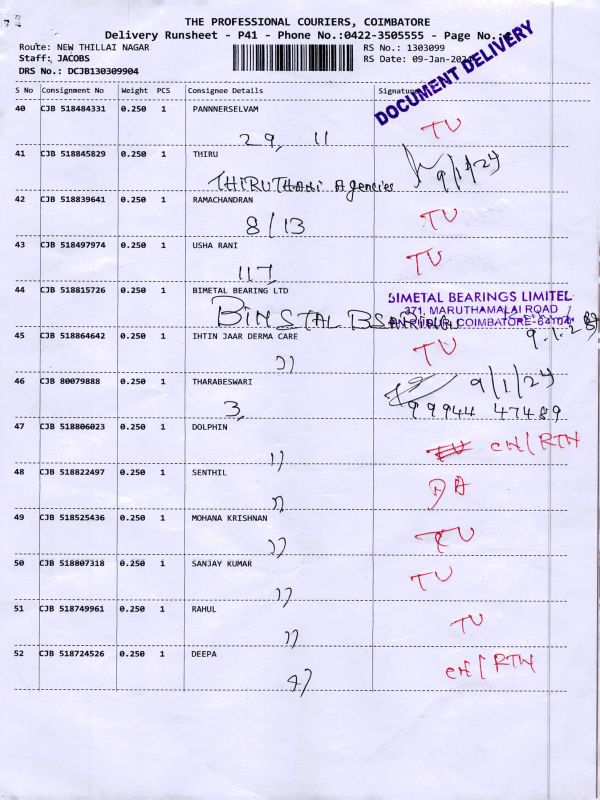 THE PROFESSIONAL COURIERS, COIMBATORE
Delivery Runsheet - P41 - Phone No.:0422-3505555 - Page No.:
Route: NEW THILLAI NAGAR
RS No.: 1303099
Staff: JACOBS
RS Date: 09-Jan-2024
DRS No.: DCJB130309904
DOCUMENT DELIVERY
S No Consignment No Weight PCS Consignee Details Signature
40 CJB 518484331 0.250 1 PANNNERSELVAM
29, 11 TU
41 CJB 518845829 0.250 1 THIRU
THIRUTHANI Agencies 9/1/24
42 CJB 518839641 0.250 1 RAMACHANDRAN
8/13 TU
43 CJB 518497974 0.250 1 USHA RANI
117, TU
44 CJB 518815726 0.250 1 BIMETAL BEARING LTD
BIMETAL BEARINGS LIMITED
371, MARUTHAMALAI ROAD
COIMBATORE-641041
45 CJB 518864642 0.250 1 IHTIN JAAR DERMA CARE
)) TU
46 CJB 80079888 0.250 1 THARABESWARI
9/1/24
3, 99944 47489
47 CJB 518806023 0.250 1 DOLPHIN
)) TU CH/RTN
48 CJB 518822497 0.250 1 SENTHIL
)) DA
49 CJB 518525436 0.250 1 MOHANA KRISHNAN
)) TU
50 CJB 518807318 0.250 1 SANJAY KUMAR
)) TU
51 CJB 518749961 0.250 1 RAHUL
)) TU
52 CJB 518724526 0.250 1 DEEPA
CH/RTN